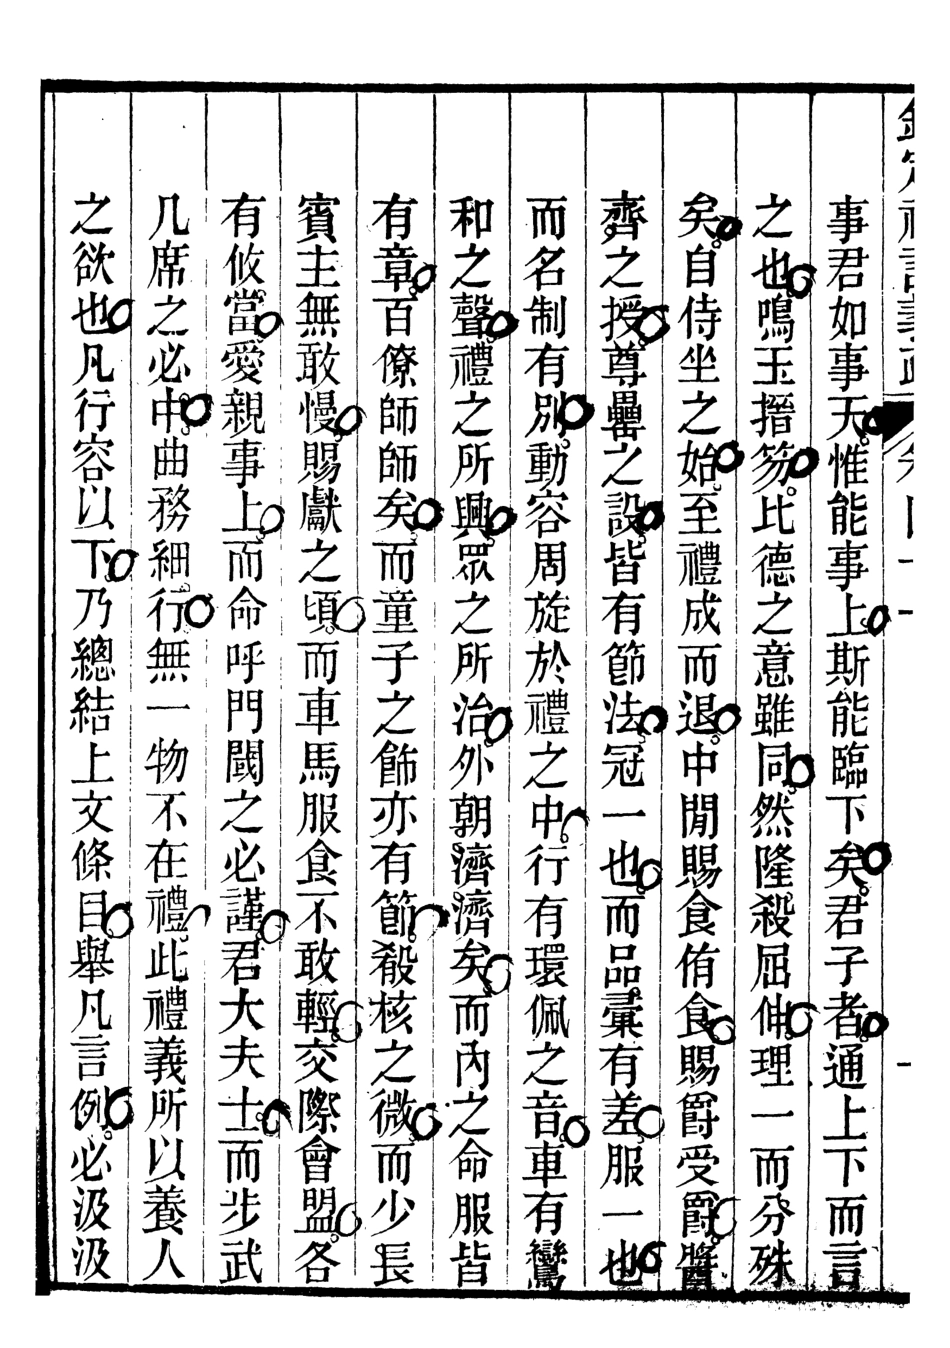 欽定禮記義疏 卷四十一
事君如事天惟能事上斯能臨下矣君子者通上下而言
之也鳴玉搢笏比德之意雖同然隆殺屈伸理一而分殊
矣自侍坐之始至禮成而退中閒賜食侑食賜爵受爵醬
齊之授尊罍之設皆有節法冠一也而品彙有差服一也
而名制有別動容周旋於禮之中行有環佩之音車有鸞
和之聲禮之所興眾之所治外朝濟濟矣而內之命服皆
有章百僚師師矣而童子之飾亦有節殽核之微而少長
賓主無敢慢賜獻之頃而車馬服食不敢輕交際會盟各
有攸當愛親事上而命呼門闑之必謹君大夫士而步武
几席之必中曲務細行無一物不在禮此禮義所以養人
之欲也凡行容以下乃總結上文條目舉凡言例必汲汲